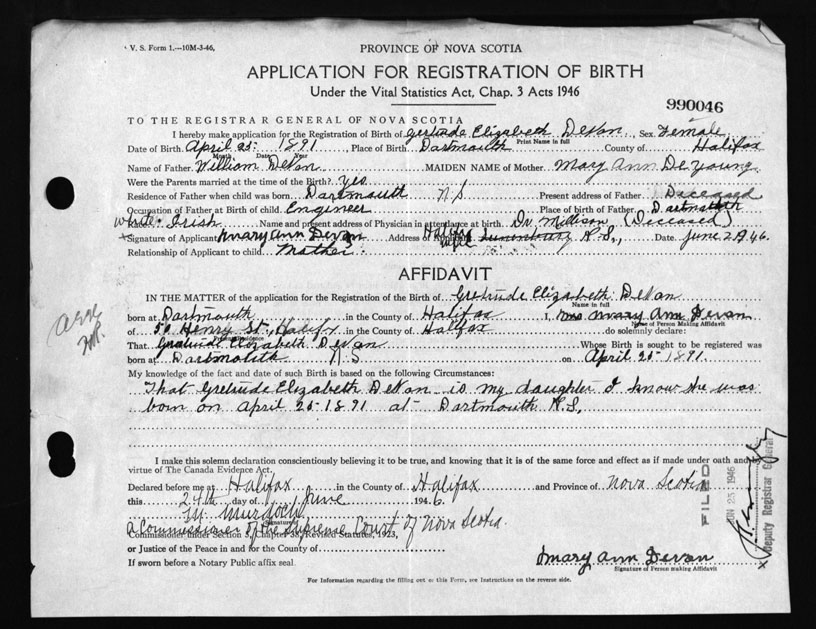 V. S. Form 1.—10M-3-46.
PROVINCE OF NOVA SCOTIA
APPLICATION FOR REGISTRATION OF BIRTH
Under the Vital Statistics Act, Chap. 3 Acts 1946
990046
TO THE REGISTRAR GENERAL OF NOVA SCOTIA
I hereby make application for the Registration of Birth of Gertrude Elizabeth DeVan, Sex Female
Print Name in full
Date of Birth April 25 1891, Place of Birth Dartmouth County of Halifax
Month Date Year
Name of Father William DeVan MAIDEN NAME of Mother Mary Ann De Young
Were the Parents married at the time of the Birth? Yes
Residence of Father when child was born Dartmouth N S Present address of Father Deceased
Occupation of Father at Birth of child Engineer Place of Birth of Father Dartmouth
White Irish Name and present address of Physician in attendance at birth Dr. (Deceased)
x Signature of Applicant Mary Ann Devan Address of Applicant N.S., Date June 24 46
Relationship of Applicant to child Mother
AFFIDAVIT
IN THE MATTER of the application for the Registration of the Birth of Gertrude Elizabeth DeVan
Name in full
born at Dartmouth in the County of Halifax I, Mrs Mary Ann Devan
Name of Person Making Affidavit
of 50 Henry St, Halifax in the County of Halifax do solemnly declare:
That Gertrude Elizabeth DeVan Whose Birth is sought to be registered was
born at Dartmouth N S on April 25 1891
My knowledge of the fact and date of such Birth is based on the following Circumstances:
That Gretrude Elizabeth DeVan is my daughter I know she was
born on April 25 1891 at Dartmouth N.S.
I make this solemn declaration conscientiously believing it to be true, and knowing that it is of the same force and effect as if made under oath and by
virtue of The Canada Evidence Act.
Declared before me at Halifax in the County of Halifax and Province of Nova Scotia
this 24th day of June 1946
M. Murdoch
Signature of
A Commissioner of the Supreme Court of Nova Scotia.
Commissioner under Section 3, Chapter 38, Revised Statutes, 1923,
or Justice of the Peace in and for the County of
If sworn before a Notary Public affix seal.
Mary Ann Devan
x
Signature of Person making Affidavit
For Information regarding the filling out of this Form, see Instructions on the reverse side.
FILED
JUN 25 1946
Deputy Registrar General